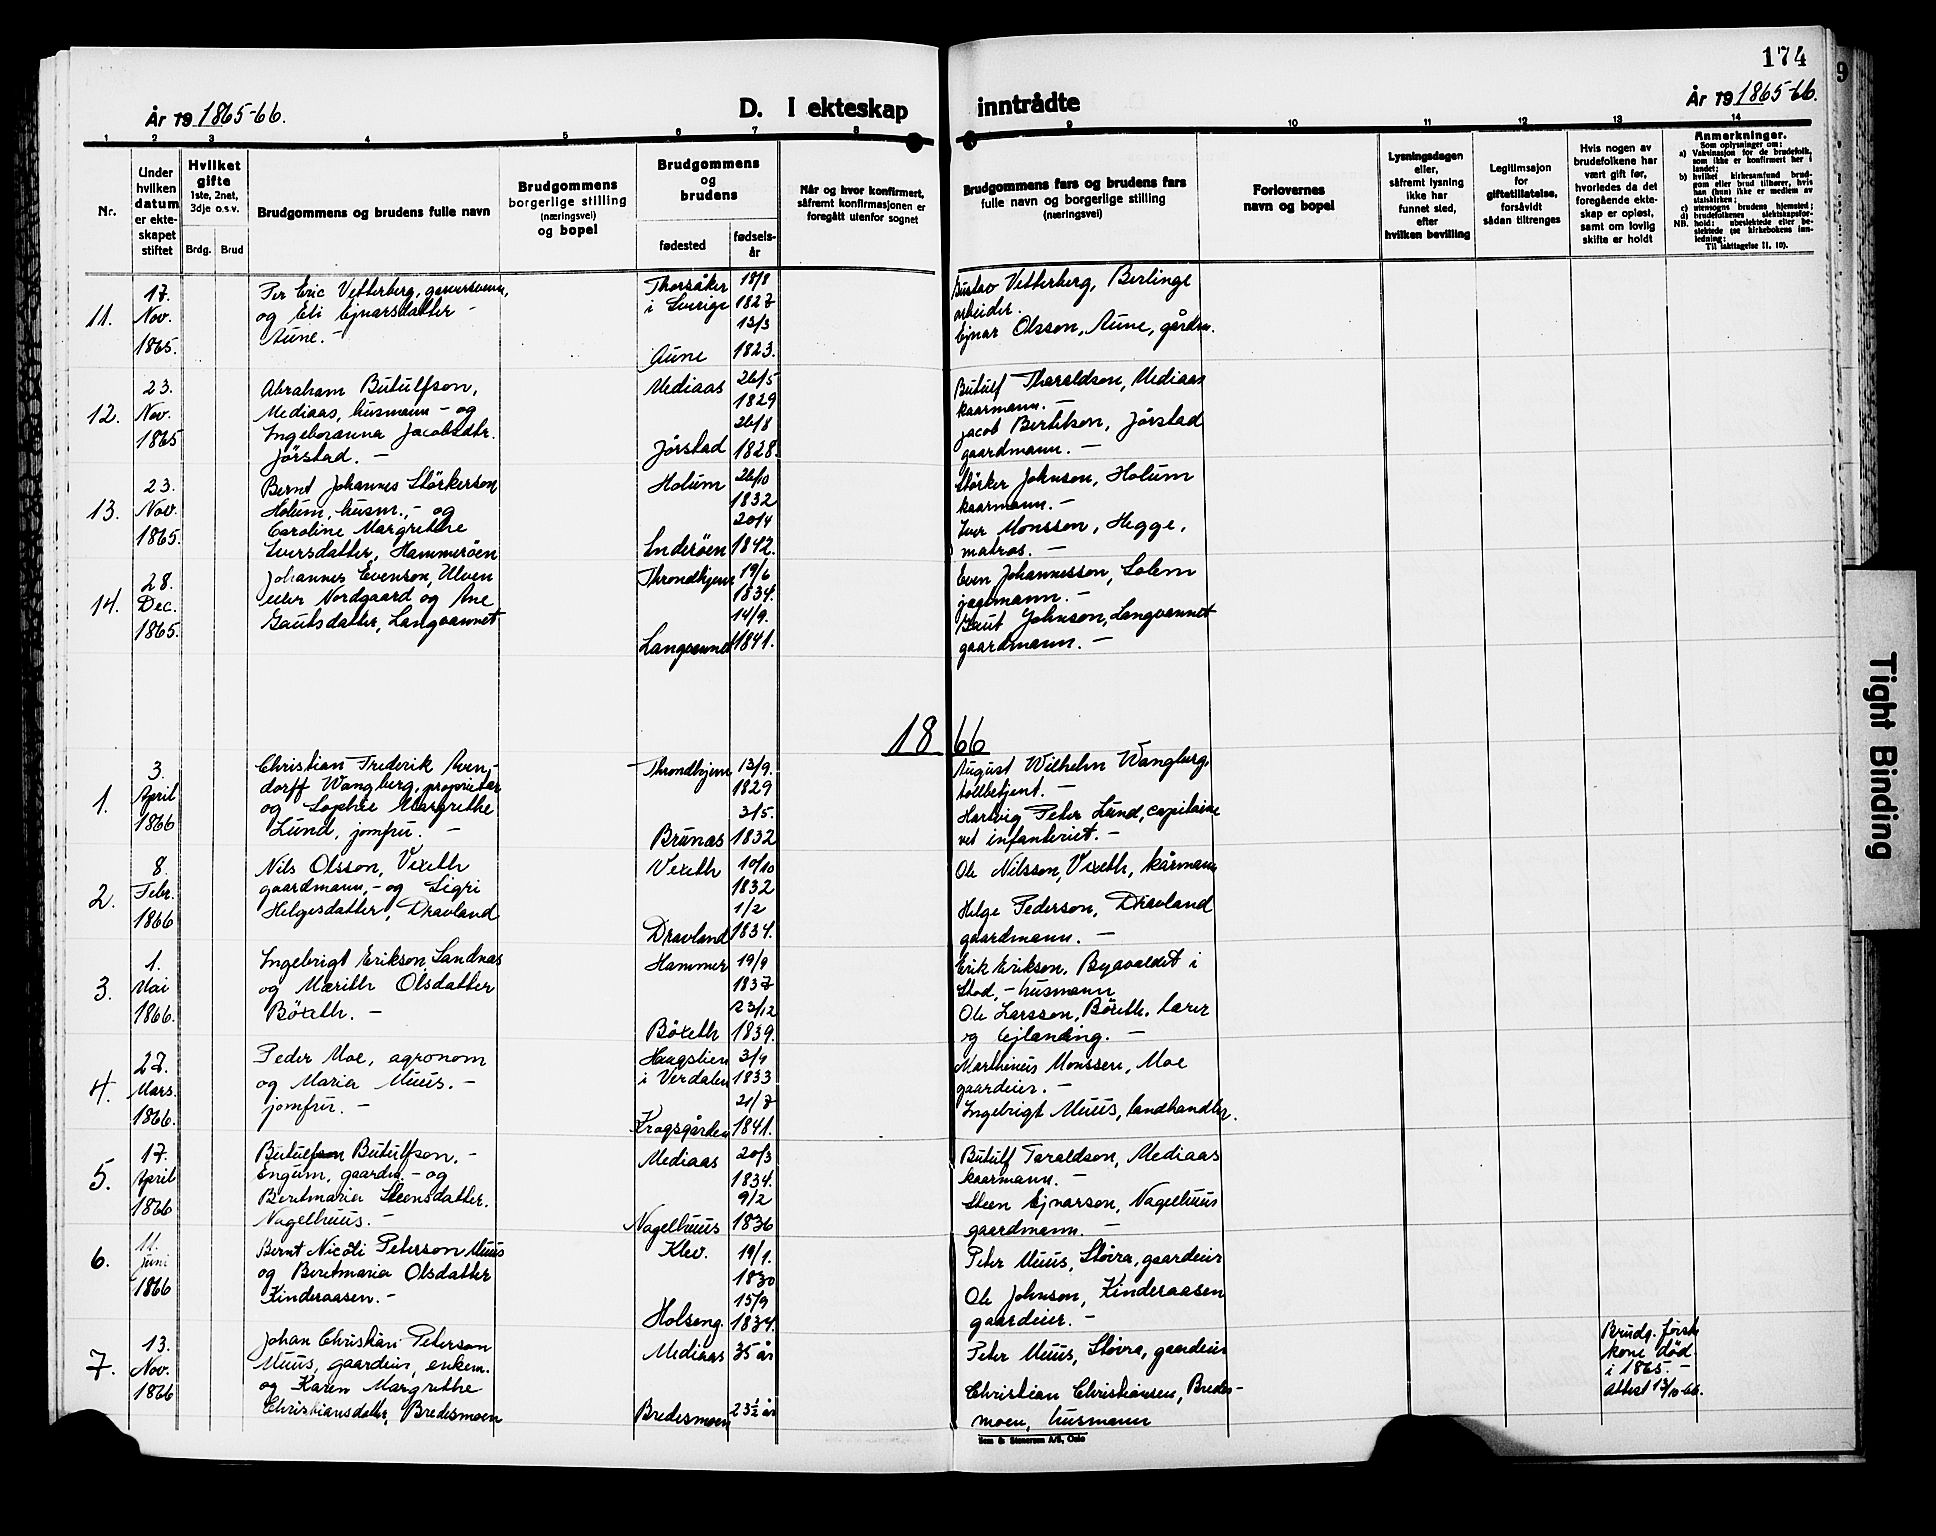 174
År 19 1865-66.
D. I ekteskap inntrådte
År 19 1865-66.
1 2 3 4 5 6 7 8 9 10 11 12 13 14
Nr.
Under hvilken datum er ekteskapet stiftet
Hvilket gifte
1ste, 2net, 3dje o.s.v.
Brdg. Brud
Brudgommens og brudens fulle navn
Brudgommens borgerlige stilling (næringsvei) og bopel
Brudgommens og brudens
fødested
fødselsår
Når og hvor konfirmert, såfremt konfirmasjonen er foregått utenfor sognet
Brudgommens fars og brudens fars fulle navn og borgerlige stilling (næringsvei)
Forlovernes navn og bopel
Lysningsdagen eller, såfremt lysning ikke har funnet sted, efter hvilken bevilling
Legitimasjon for giftetillatelse, forsåvidt sådan tiltrenges
Hvis nogen av brudefolkene har vært gift før, hvorledes da det foregående ekteskap er opløst, samt om lovlig skifte er holdt
Anmerkninger.
Som oplysninger om:
a) Vaksinasjon for de brudefolk, som ikke er konfirmert her i landet;
b) hvilket kirkesamfund brudgom eller brud tilhører, hvis han (hun) ikke er medlem av statskirken;
c) utensogns brudens hjemsted;
d) brudefolkenes slektskapsforhold: ubeslektede eller beslektede (se kirkebokens innledning;
NB. Til iakttagelse II, 10).
11.
17.
Nov.
1865.
Per Eric Vetterberg, garversvenn,
og Eli Ejnarsdatter -
Aune. -
Thorsåker
i Sverige
Aune
18/8
1827
13/3
1823.
Gustav Vetterberg, Berlinge
arbeider.
Ejnar Olsson, Aune, gårdm.
12.
23.
Nov.
1865
Abraham Butulfson,
Mediaas, husmann - og
Ingeboranna Jacobsdtr.
Jørstad. -
Mediaas
Jørstad
26/5
1829
26/8
1828.
Butulf Tharaldson, Mediaas
kaarmann. -
Jacob Bertilson, Jørstad
gaardmann. -
13.
23.
Nov.
1865.
Bernt Johannes Störkerson
Holum, husm., - og
Caroline Margrethe
Iversdatter, Hammerøen
Holum
Inderöen
26/10
1832
20/4
1842.
Störker Johnson, Holum
kaarmann. -
Iver Monsson, Hegge,
matros. -
14.
28.
Dec.
1865.
Johannes Evenson, Ulven
eller Nordgaard og Ane
Gautsdatter, Langvannet
Throndhjem
Langvannet
19/6
1834.
14/9.
1841.
Even Johannesson, Solem
jagtmann. -
Gaut Johnson, Langvannet
gaardmann. -
1866
1.
3.
April
1866
Christian Frederik Aven-
dorff Wangberg, proprietær
og Sophie Margrethe
Lund, jomfru. -
Throndhjem
Brunas
13/9.
1829
3/5.
1832
August Wilhelm Wangberg,
tollbetjent. -
Hartvig Peter Lund, capitaine
ved infanteriet. -
2.
8.
Febr.
1866
Nils Olsson, Vexeth
gaardmann, - og Sigri
Helgesdatter, Dravland
Vexeth
Dravland
10/10
1832
1/2
1834.
Ole Nilsson, Vexeth, kårmann
Helge Pederson, Dravland
gaardmann. -
3.
1.
Mai
1866.
Ingebrigt Erikson, Sandnas
og Marith Olsdatter
Böxeth. -
Hammer
Böxeth
19/9
1837
23/12
1839.
Erik Erikson, Byavaldet i
Stod, - husmann
Ole Larsson, Böxeth, lærer
og Ejlanding. -
4.
27.
Mars.
1866.
Peder Moe, agronom
og Maria Muus. -
jomfru. -
Haugslien
i Verdalen
Krogsgården
3/4
1833
21/7
1841.
Marthinus Monssen, Moe
gaardeier. -
Ingebrigt Muus, landhandler.
5.
17.
April
1866
Butulfson Butulfson. -
Engum, gaardm. - og
Beretmaria Steensdatter.
Nagelhuus. -
Mediaas
Nagelhuus
20/3
1834.
9/2
1836
Butulf Taraldson, Mediaas
kaarmann. -
Steen Ejnarson, Nagelhuus
gaardmann. -
6.
11.
Juni
1866
Bernt Nicoli Peterson Muus
og Beretmaria Olsdatter
Kinderaasen. -
Klev.
Holseng.
19/1.
1830
15/9
1834.
Peter Muus, Støvra, gaardeier
Ole Johnson, Kinderaasen
gaardeier. -
7.
13.
Nov.
1866
Johan Christian Peterson
Muus, gaardeier, enkem.
og Karen Margrethe
Christiansdatter, Bredesmoen
Mediaas
Bredesmoen
35 år
23 1/2 år
Peter Muus, Støvra, gaardeier
Christian Christiansen, Bredes-
moen, husmann
Brudg. første
kone død
i 1865. -
Attest 13/10 66.
Sem & Stenersen A/S, Oslo
Tight Binding
9